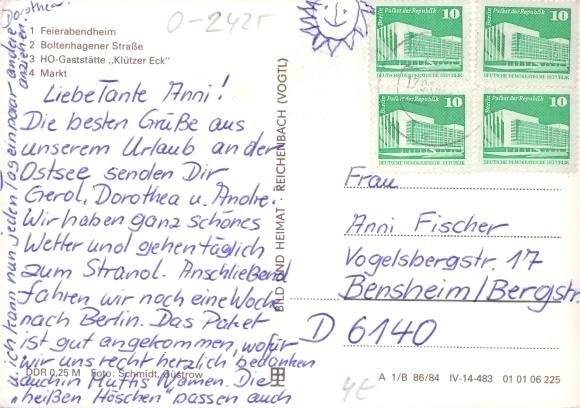 O-242r
1 Feierabendheim
2 Boltenhagener Straße
3 HO-Gaststätte „Klützer Eck"
4 Markt
Liebe Tante Anni!
Die besten Grüße aus
unserem Urlaub an der
Ostsee senden Dir
Gerol, Dorothea u. Andre.
Wir haben ganz schönes
Wetter und gehen täglich
zum Strand. Anschließend
fahren wir noch eine Woche
nach Berlin. Das Paket
ist gut angekommen, wofür
wir uns recht herzlich bedanken
auch in Muttis Namen. Die
"heißen Höschen" passen auch
u. ich kann nun jeden Tag ein paar andere
anziehen.
Dorothea
DDR 0,25 M Foto: Schmidt, Güstrow
BILD UND HEIMAT · REICHENBACH (VOGTL)
Berlin Palast der Republik 10
DEUTSCHE DEMOKRATISCHE REPUBLIK
Berlin Palast der Republik 10
DEUTSCHE DEMOKRATISCHE REPUBLIK
Berlin Palast der Republik 10
DEUTSCHE DEMOKRATISCHE REPUBLIK
Berlin Palast der Republik 10
DEUTSCHE DEMOKRATISCHE REPUBLIK
Frau
Anni Fischer
Vogelsbergstr. 17
Bensheim/Bergstr.
D 6140
4€
A 1/B 86/84 IV-14-483 01 01 06 225